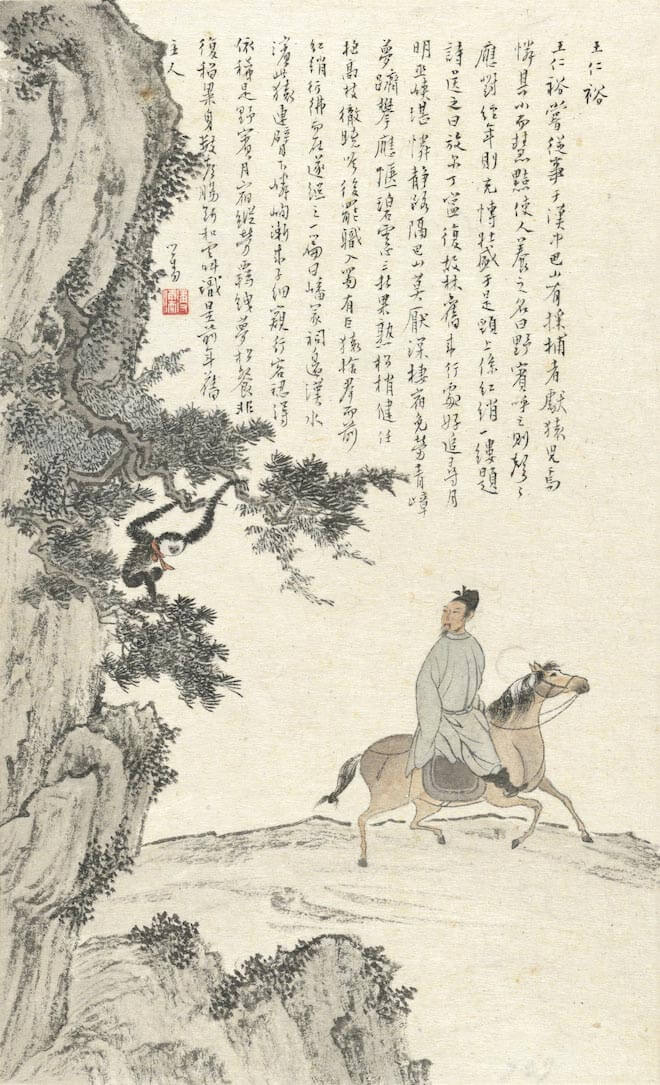 王仁裕
王仁裕嘗從事于漢中巴山有採捕者獻猿兒焉
憐其小而慧黠使人養之名曰野賓呼之則聲聲
應對經年則充博壯盛于是頸上係紅綃一縷題
詩送之曰放尓丁寧復故林舊來行處好追尋月
明巫峽堪憐静路隔巴山莫厭深棲宿免勞青嶂
夢躋攀應愜碧雲三秋果熟松梢健任
抱高枝徹曉吟後罷職入蜀有巨猿捨群而前
紅綃彷彿而在遂繼之一篇曰嶓冢祠邊漢水
濱此猿連臂下嶙峋漸來子細窺行客認得
依稀是野賓月宿縱勞羈絏夢松餐非
復稻粱身數聲腸斷和雲叫識是前年舊
主人
心畬